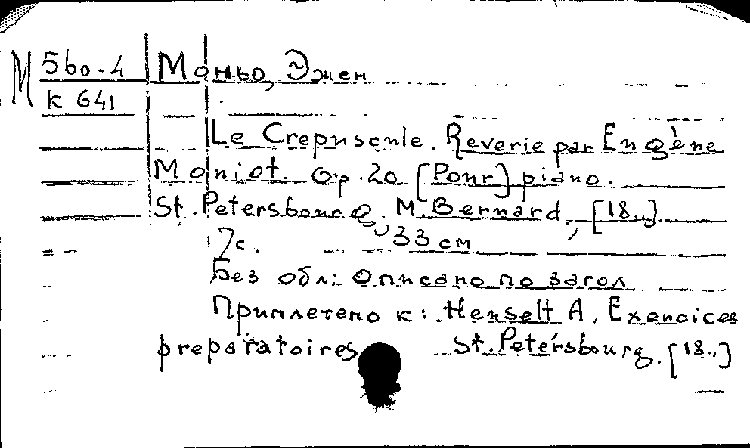 М 560-4 Моньо, Джен
к 641
Le Crepuscule. Reverie par Eugène
Moniot. Op. 20 [Pour] piano.
St. Petersbourg. M. Bernard, [18..]
7с. 33 см
Без обл: Описано по загол
Приплетено к: Henselt A. Exercices
preparatoires St. Petersbourg. [18..]